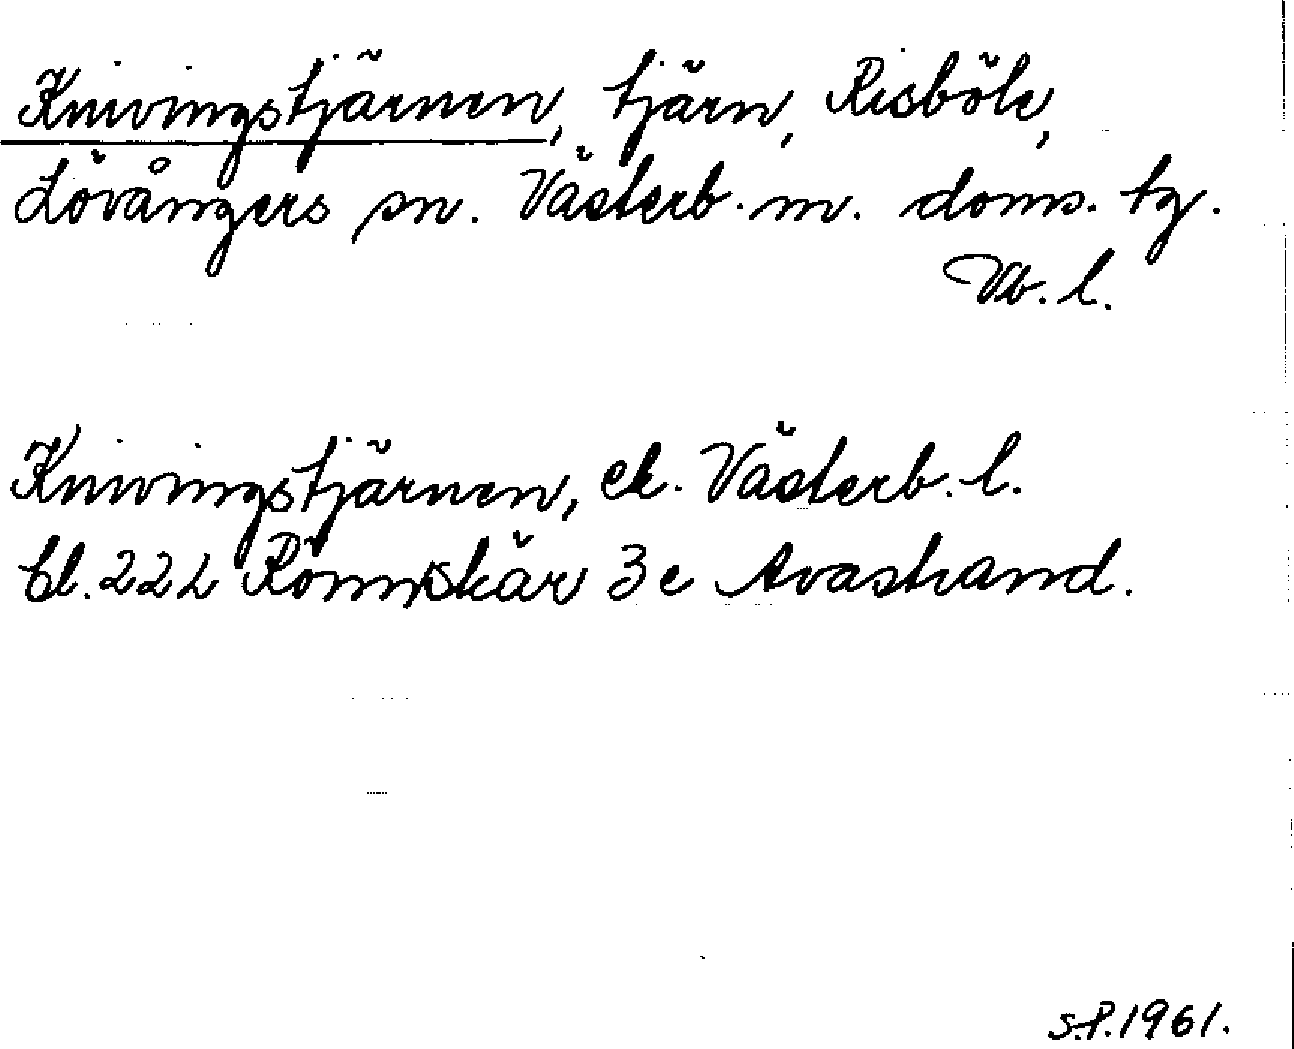 Knivingstjärnen, tjärn, Risböle,
Lövångers sn. Västerb. m. doms. tg.
Vb. l.
Knivingstjärnen, ek. Västerb. l.
bl. 22L Rönnskär 3c Avastrand.
S.P. 1961.